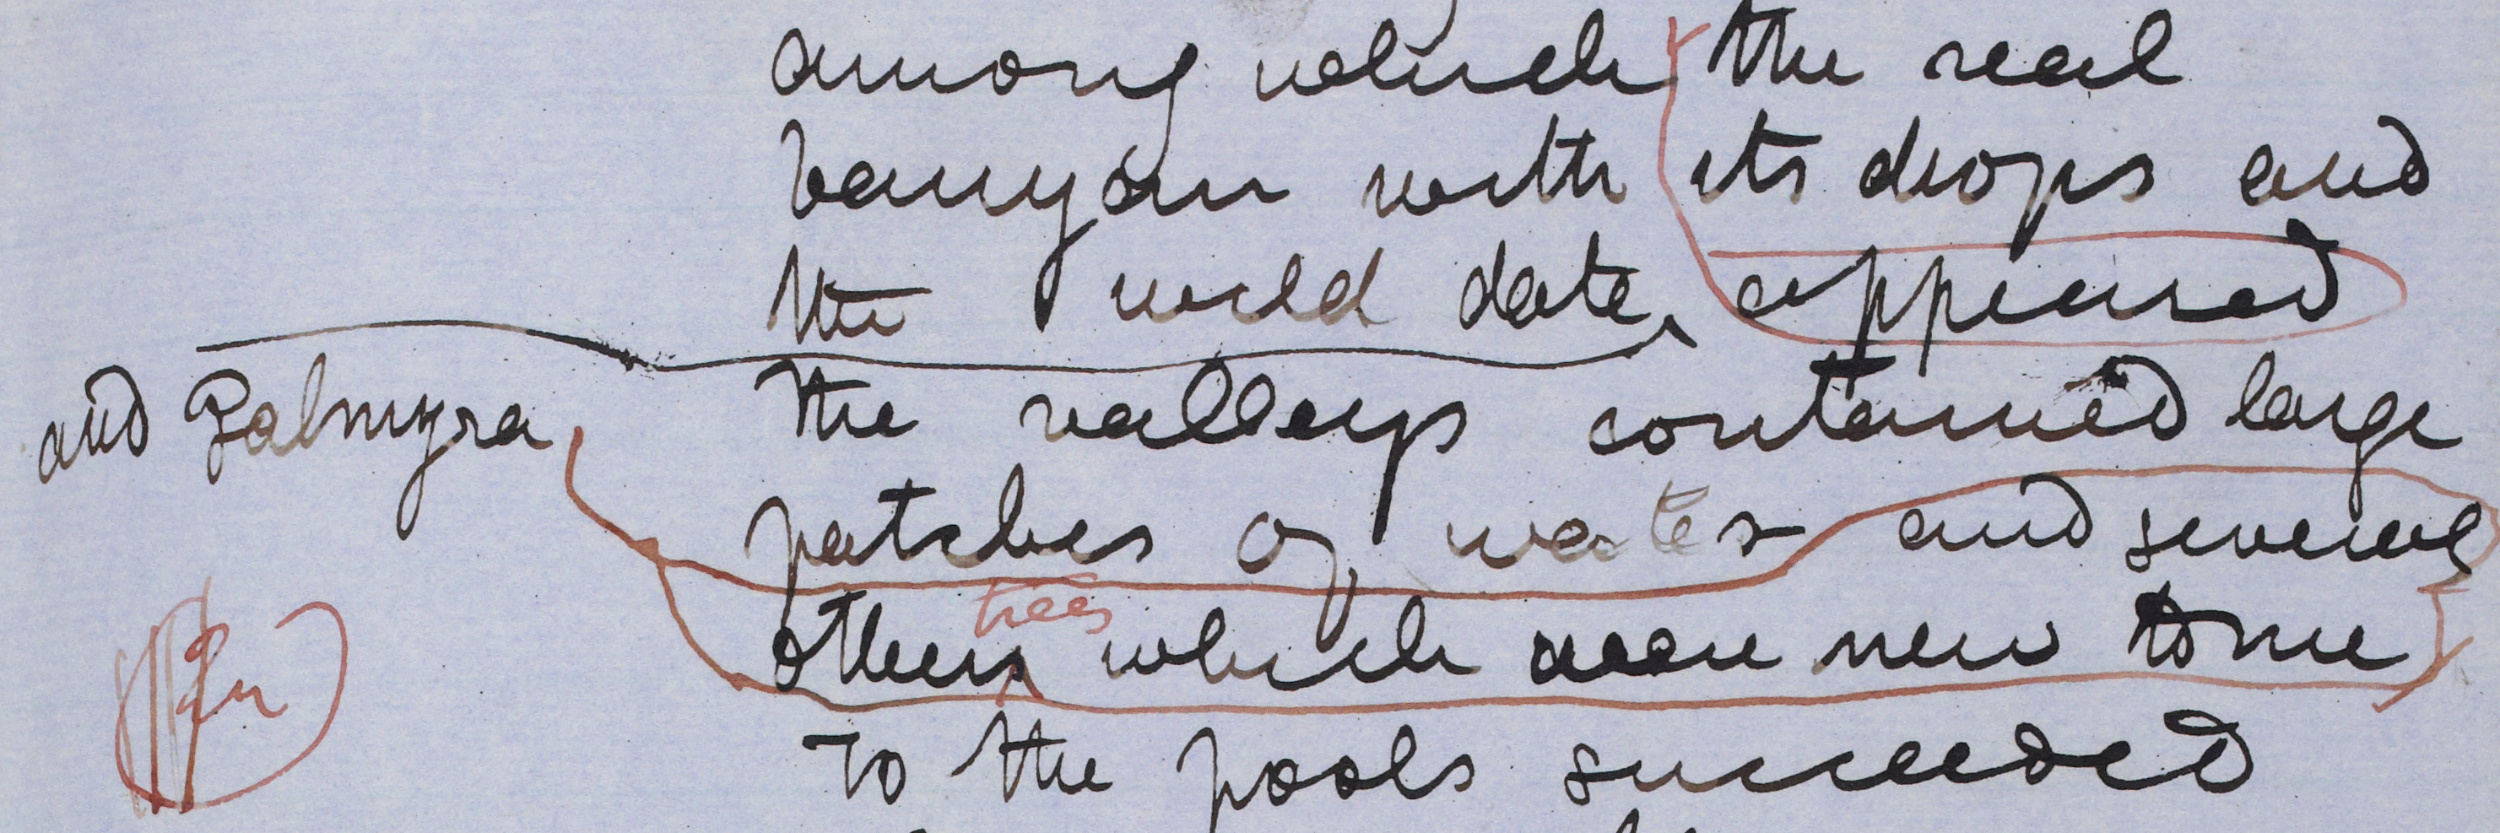 among which the real
banyan with its drops and
the wild date, appeared
and Palmyra
the valleys contained large
patches of water and several
trees
others which were new to me
To the pools succeeded